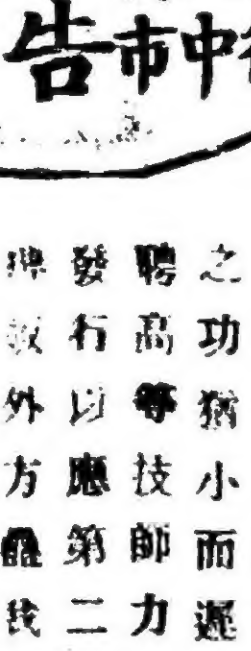 中市告
之功猶小而遲
聘高等技師力
發行以應第二
外方